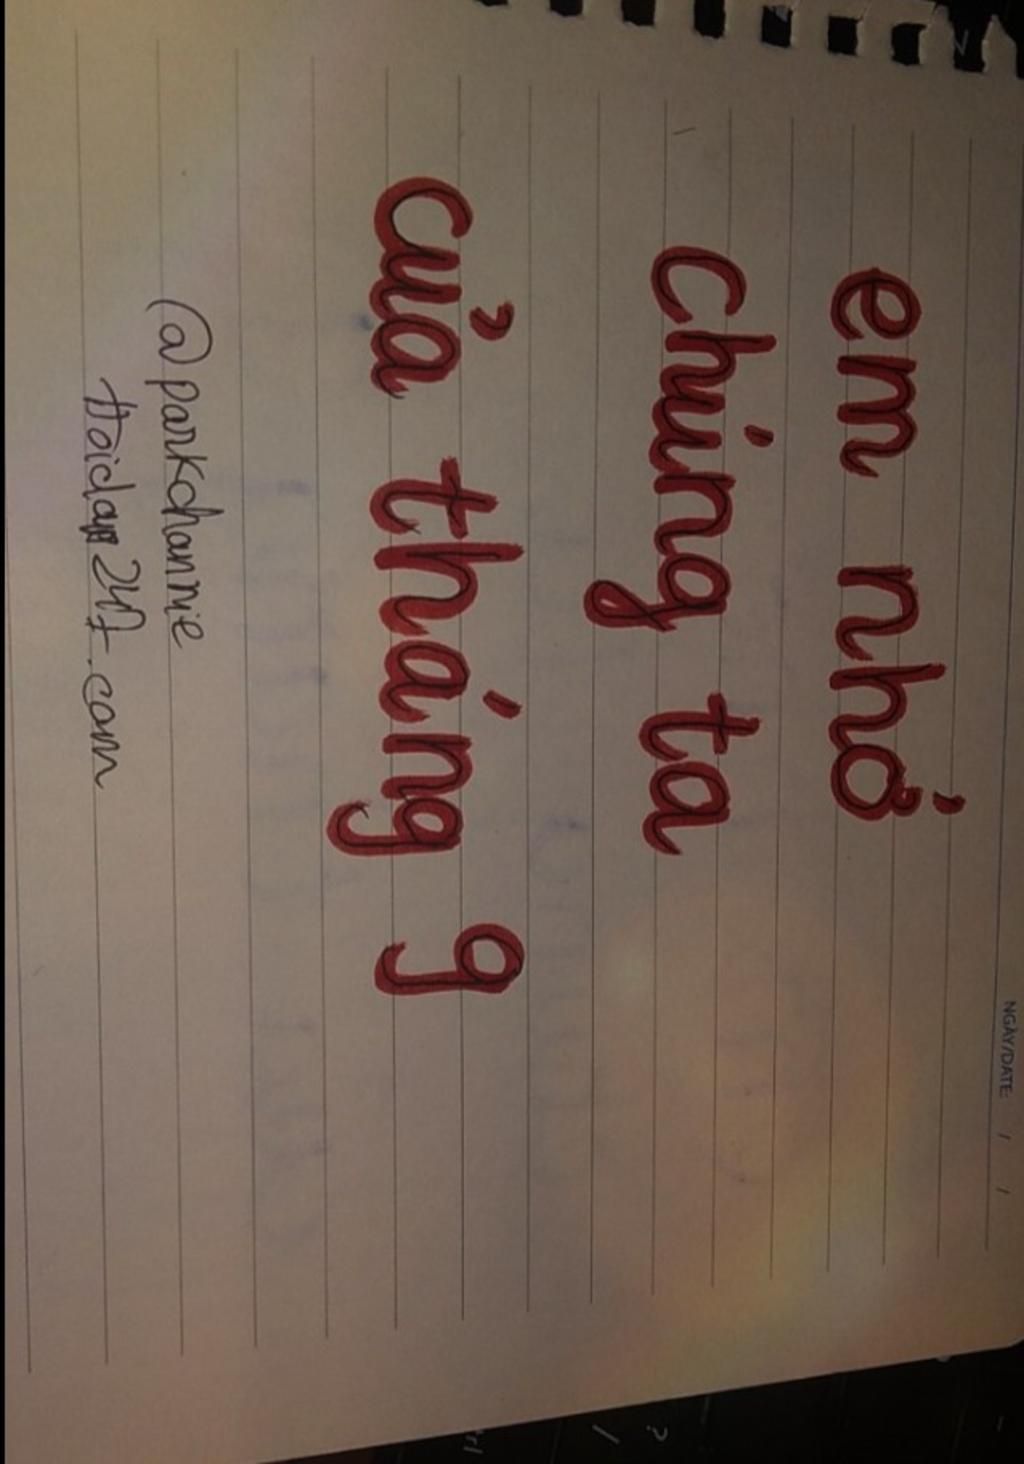 NGÀY/DATE: / /
em nhớ
chúng ta
của tháng 9
@parkchannie
Hoidap247.com